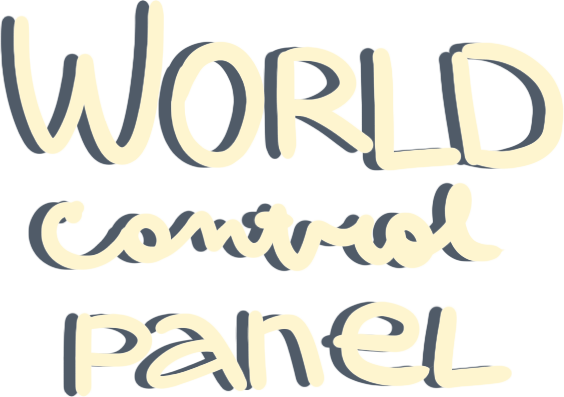 WORLD
control
panel